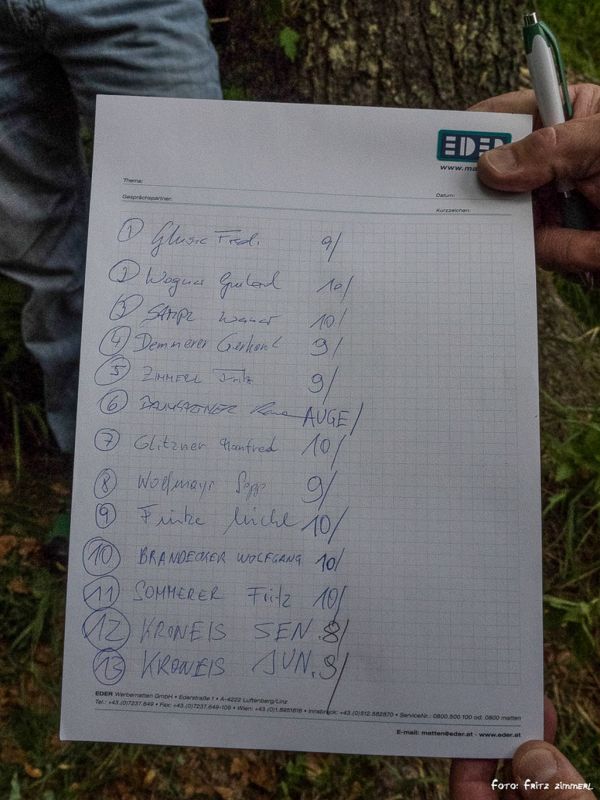 EDER
www.ma
Thema:
Datum:
Gesprächspartner:
Kurzzeichen:
1 Fredi 9/
2 Wagner Gerhard 10/
3 10/
4 Demmerer Gerhard 9/
5 ZIMMERL Fritz 9/
6 AUGE/
7 Glitzner Manfred 10/
8 Wolfmayr Sepp 9/
9 Michl 10/
10 BRANDECKER WOLFGANG 10/
11 SOMMERER Fritz 10/
12 KRONEIS SEN. 8/
13 KRONEIS JUN. 8/
EDER Werbematten GmbH • Ederstraße 1 • A-4222 Luftenberg/Linz
Tel.: +43.(0)7237.649 • Fax: +43.(0)7237.649-109 • Wien: +43.(0)1.8951616 • Innsbruck: +43.(0)512.582870 • ServiceNr.: 0800.500 100 od. 0800 matten
E-mail: matten@eder.at · www.eder.at
FOTO: FRITZ ZIMMERL